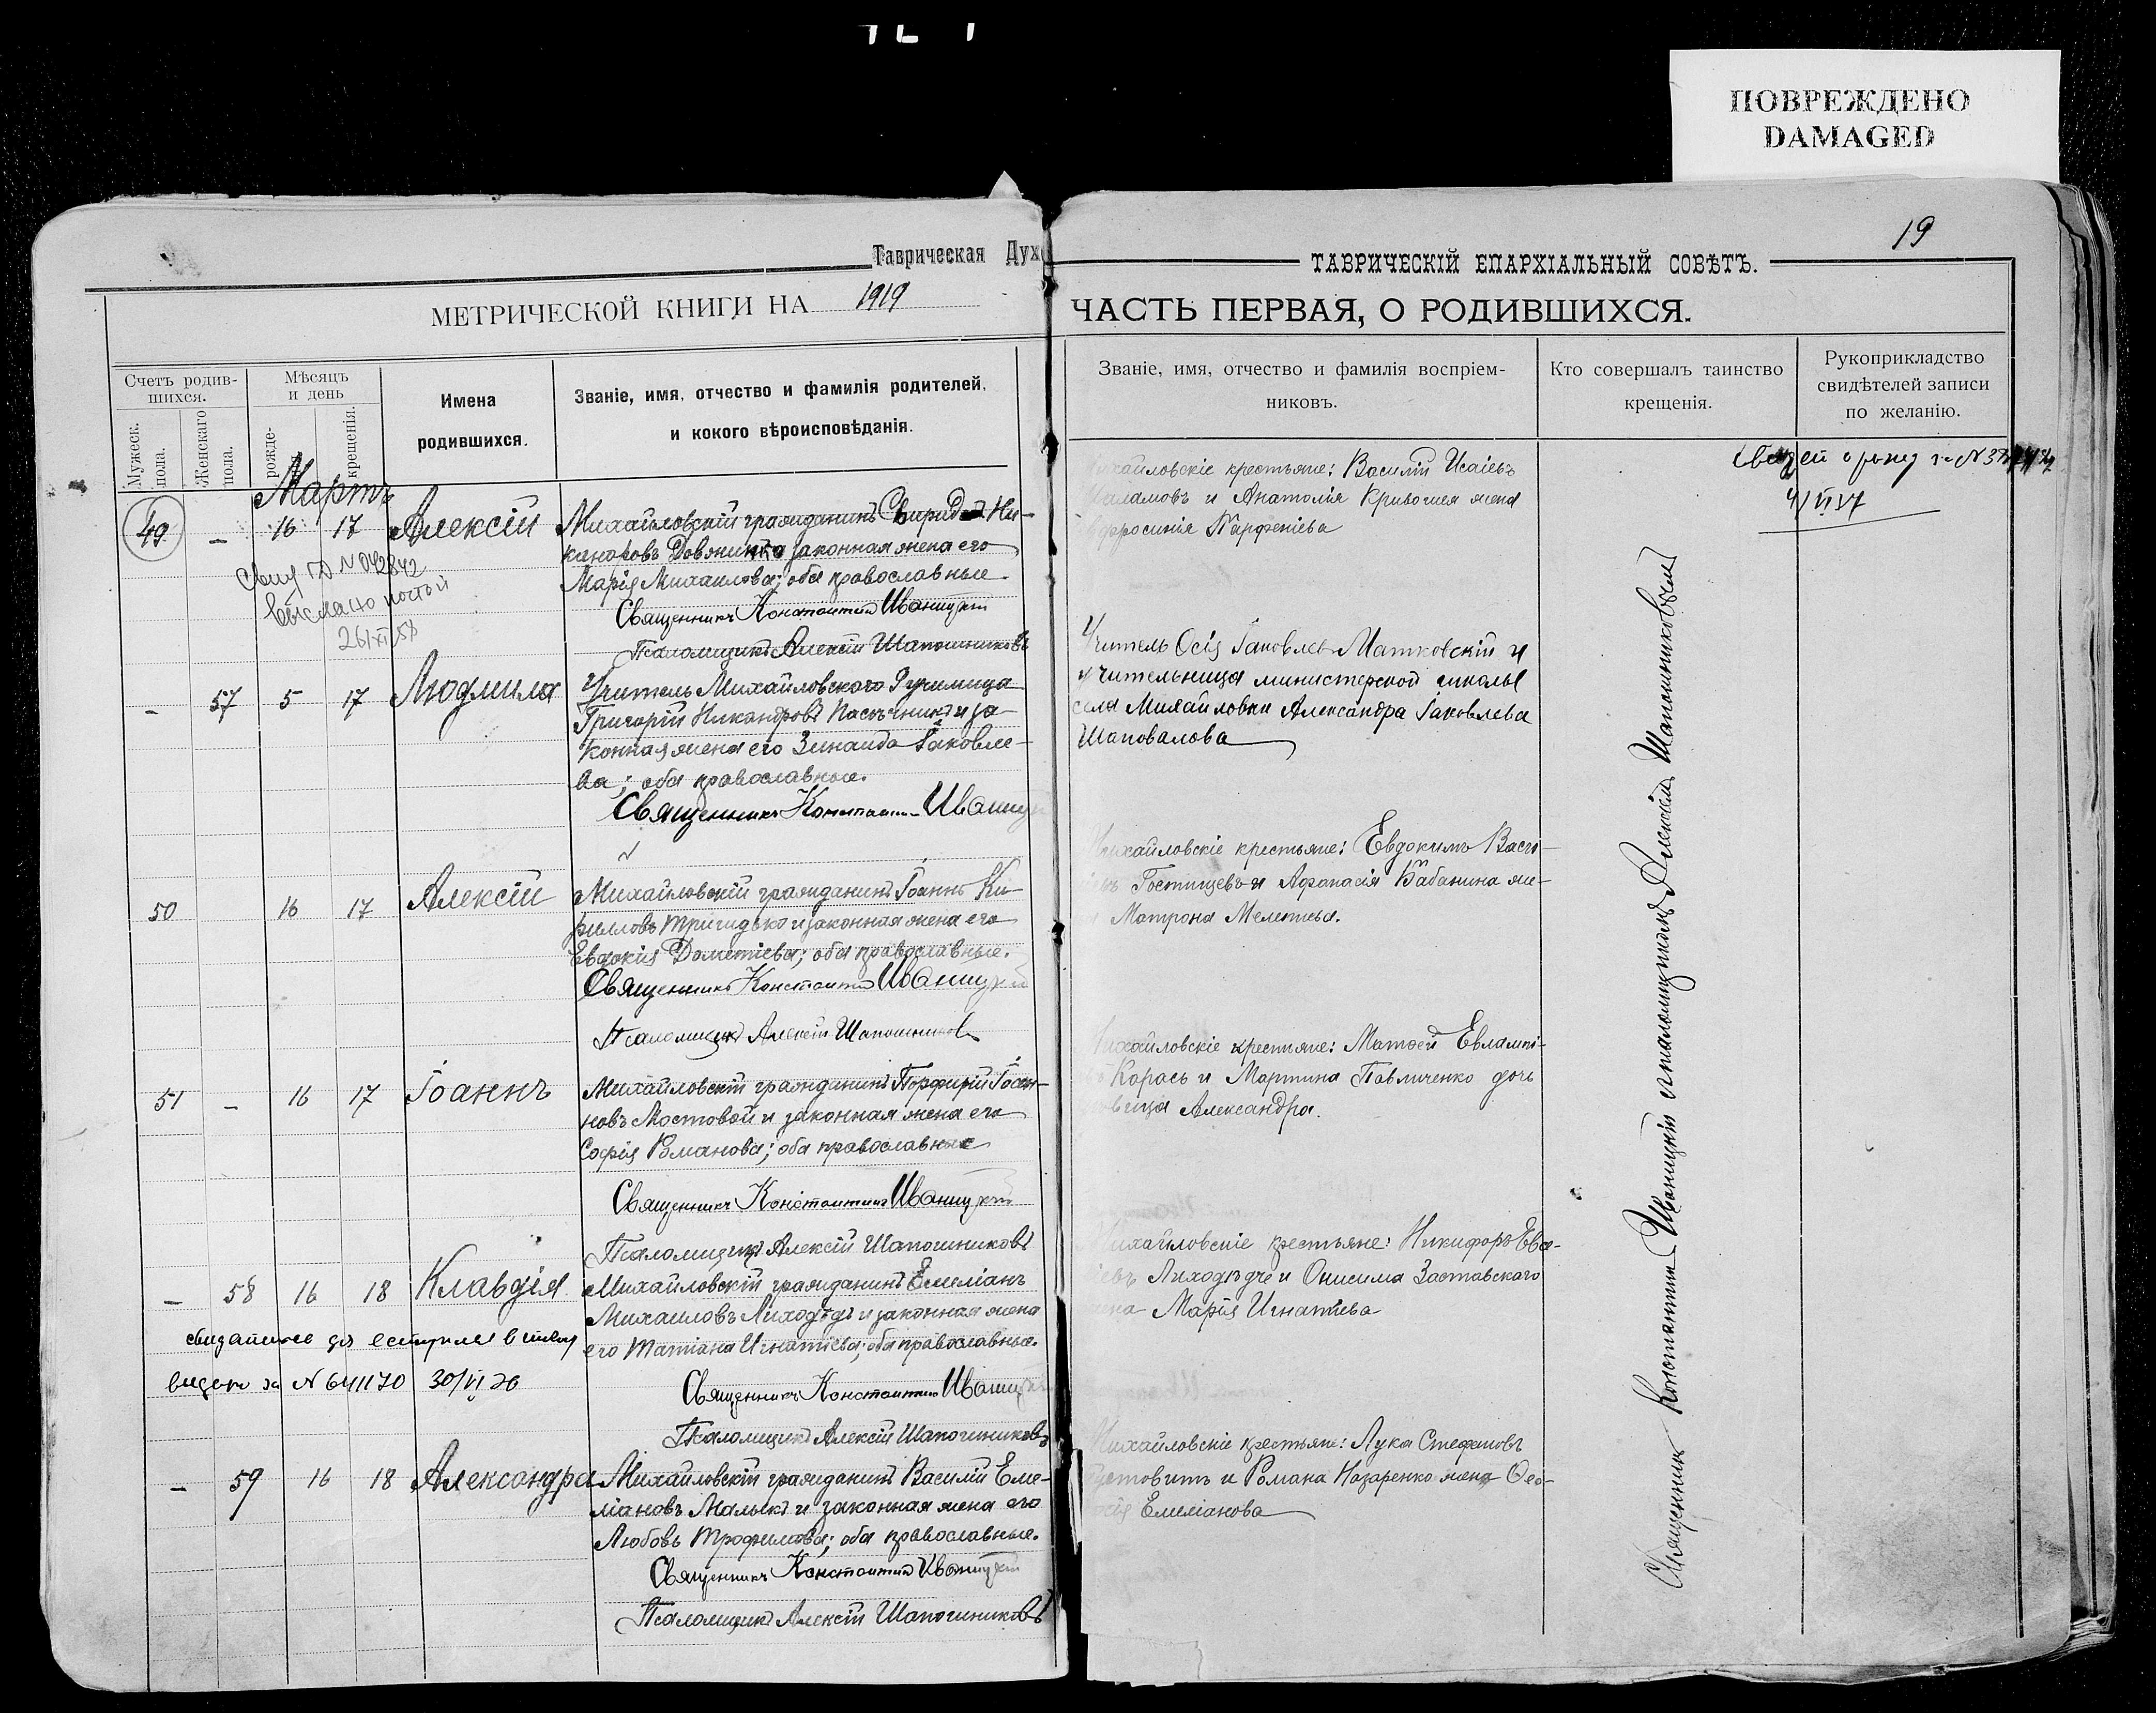 ПОВРЕЖДЕНО
DAMAGED
19
Таврическая Дух
ТАВРИЧЕСКІЙ ЕПАРХІАЛЬНЫЙ СОВѢТЪ.
МЕТРИЧЕСКОЙ КНИГИ НА 1919
ЧАСТЬ ПЕРВАЯ, О РОДИВШИХСЯ.
Счетъ родив-
шихся.
Мужеск. пола.
Женскаго пола.
Мѣсяцъ
и день
рожде-
крещенія.
Имена
родившихся.
Званіе, имя, отчество и фамилія родителей,
и кокого вѣроисповѣданія.
Званіе, имя, отчество и фамилія воспріем-
никовъ.
Кто совершалъ таинство
крещенія.
Рукоприкладство
свидѣтелей записи
по желанію.
Мартъ
49 – 16 17 Алексій
Михайловскій гражданинъ Ни-
каноровъ законная жена его
Марія Михаилова; оба православные.
Священникъ Константинъ Иваницкій
Псаломщикъ Алексій Шапошниковъ
N 042842
выслано почтой
ихайловскіе крестьяне: Василій Исаіевъ
аламовъ и Анатолія Кривошея жена
фросинія Парфеніева
4/VI 37
– 57 5 17 Людмила
Учитель Михайловского училища
Григорій Никандровъ Пасѣчникъ и за-
конная жена его Зинаида Іаковле-
ва; оба православные.
Священникъ Константинъ Иваниц
Учитель Осія Іаковлевъ Матковскій и
учительница министерской школы
села Михайловки Александра Іаковлева
Шаповалова
50 16 17 Алексій
Михайловскій гражданинъ Іоаннъ Ки-
рилловъ и законная жена его
Евдокія Дометіева; оба православные.
Священникъ Константинъ Иваницкій
Псаломщикъ Алексій Шапошниковъ
ихайловскіе крестьяне: Евдокимъ Васи-
Гостищевъ и Афанасія Бабанина же-
Матрона Мелетіева.
51 – 16 17 Іоаннъ
Михайловскій гражданинъ Порфирій Іоан-
новъ Мостовой и законная жена его
Софія Романова; оба православные
Священникъ Константинъ Иваницкій
Псаломщикъ Алексій Шапошниковъ
ихайловскіе крестьяне: Матѳей Евлампі-
Карась и Мартина Павличенко дочь
вица Александра.
– 58 16 18 Клавдія
Михайловскій гражданинъ Емеліанъ
Михаиловъ Лиходѣдъ и законная жена
его Татіана Игнатіева; оба православные.
Священникъ Константинъ Иваницкій
Псаломщикъ Алексій Шапошниковъ
N 641170 30/VI 26
ихайловскіе крестьяне: Никифоръ Евсе-
іевъ и Онисима Заставского
жена Марія Игнатіева
– 59 16 18 Александра
Михайловскій гражданинъ Василій Еме-
ліановъ Малыкъ и законная жена его
Любовь Трофимова; оба православные.
Священникъ Константинъ Иваницкій
Псаломщикъ Алексій Шапошниковъ
ихайловскіе крестьяне: Лука Стефановъ
и Романа Назаренко жена Ѳео-
сія Емеліанова
Священникъ Константинъ Иваницкій съ псаломщикомъ Алексіемъ Шапошниковымъ